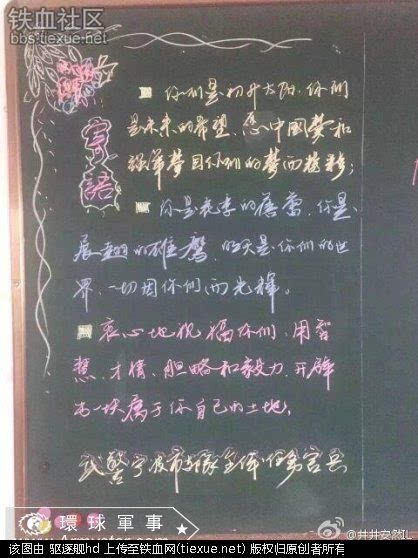 铁血社区
bbs.tiexue.net
寄語
你们是初升太阳，你们
是未来的希望，愿中国梦和
强军梦因你们的梦而精彩；
你是花季的蓓蕾，你是
展翅的雄鹰，明天是你们的世
界，一切因你们而光辉。
衷心地祝福你们，用智
慧、才情、胆略和毅力，开辟
出一块属于你自己的土地。
武警宁波市支队全体任务官兵
環球軍事
该图由 驱逐舰hd 上传至铁血网(tiexue.net) 版权归原创者所有